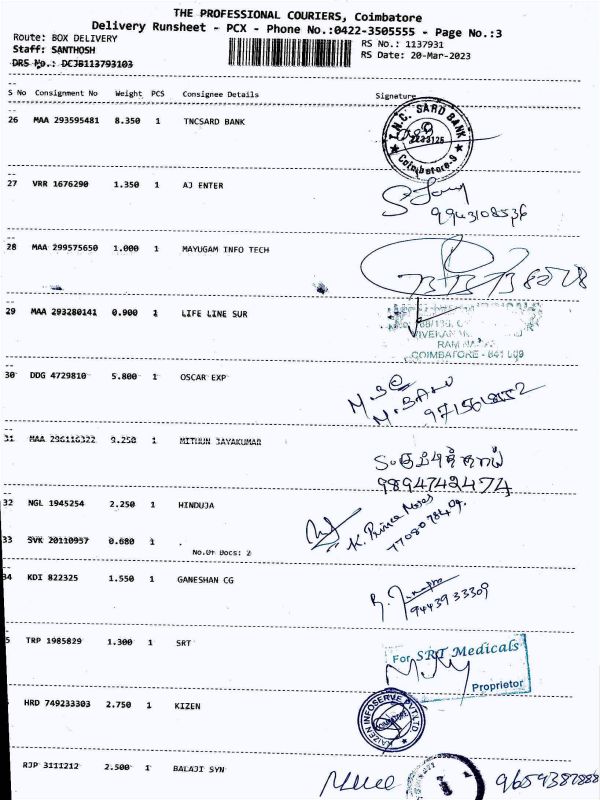 THE PROFESSIONAL COURIERS, Coimbatore
Delivery Runsheet - PCX - Phone No.:0422-3505555 - Page No.:3
Route: BOX DELIVERY
RS No.: 1137931
Staff: SANTHOSH
RS Date: 20-Mar-2023
DRS No.: DCJB113793103
S No Consignment No Weight PCS Consignee Details Signature
26 MAA 293595481 8.350 1 TNCSARD BANK
T.N.C. SARD BANK
2233125
Coimbatore-9
27 VRR 1676290 1.350 1 AJ ENTER
9943108536
28 MAA 299575650 1.000 1 MAYUGAM INFO TECH
29 MAA 293280141 0.900 1 LIFE LINE SUR
RAM NAGAR
COIMBATORE - 641 009
30 DDG 4729810 5.800 1 OSCAR EXP
M. BANU
31 MAA 296116322 9.250 1 MITHUN JAYAKUMAR
9894742474
32 NGL 1945254 2.250 1 HINDUJA
K. Prince Moses
33 SVK 20110957 0.680 1 .
No.Of Docs: 2
34 KDI 822325 1.550 1 GANESHAN CG
9443933309
5 TRP 1985829 1.300 1 SRT
For SRT Medicals
Proprietor
HRD 749233303 2.750 1 KIZEN
KAIZEN INFOSERVE PVT LTD
RJP 3111212 2.500 1 BALAJI SYN